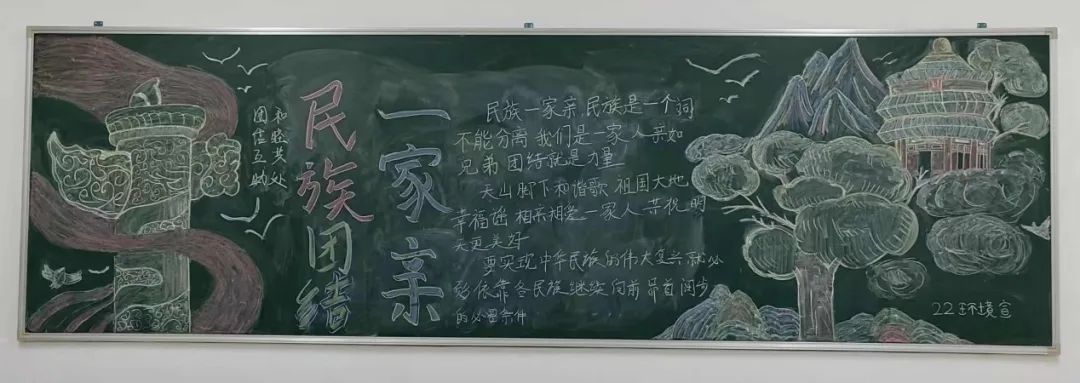 和睦共处
团结互助
民族团结
一家亲
民族一家亲,民族是一个词
不能分离 我们是一家人 共如
兄弟 团结就是力量
天山脚下和谐歌 祖国大地
幸福谣 相亲相爱一家人 共祝明
天更美好
要实现中华民族的伟大复兴 就必
依靠各民族继续向前 昂首阔步
的必要条件
22环境宣